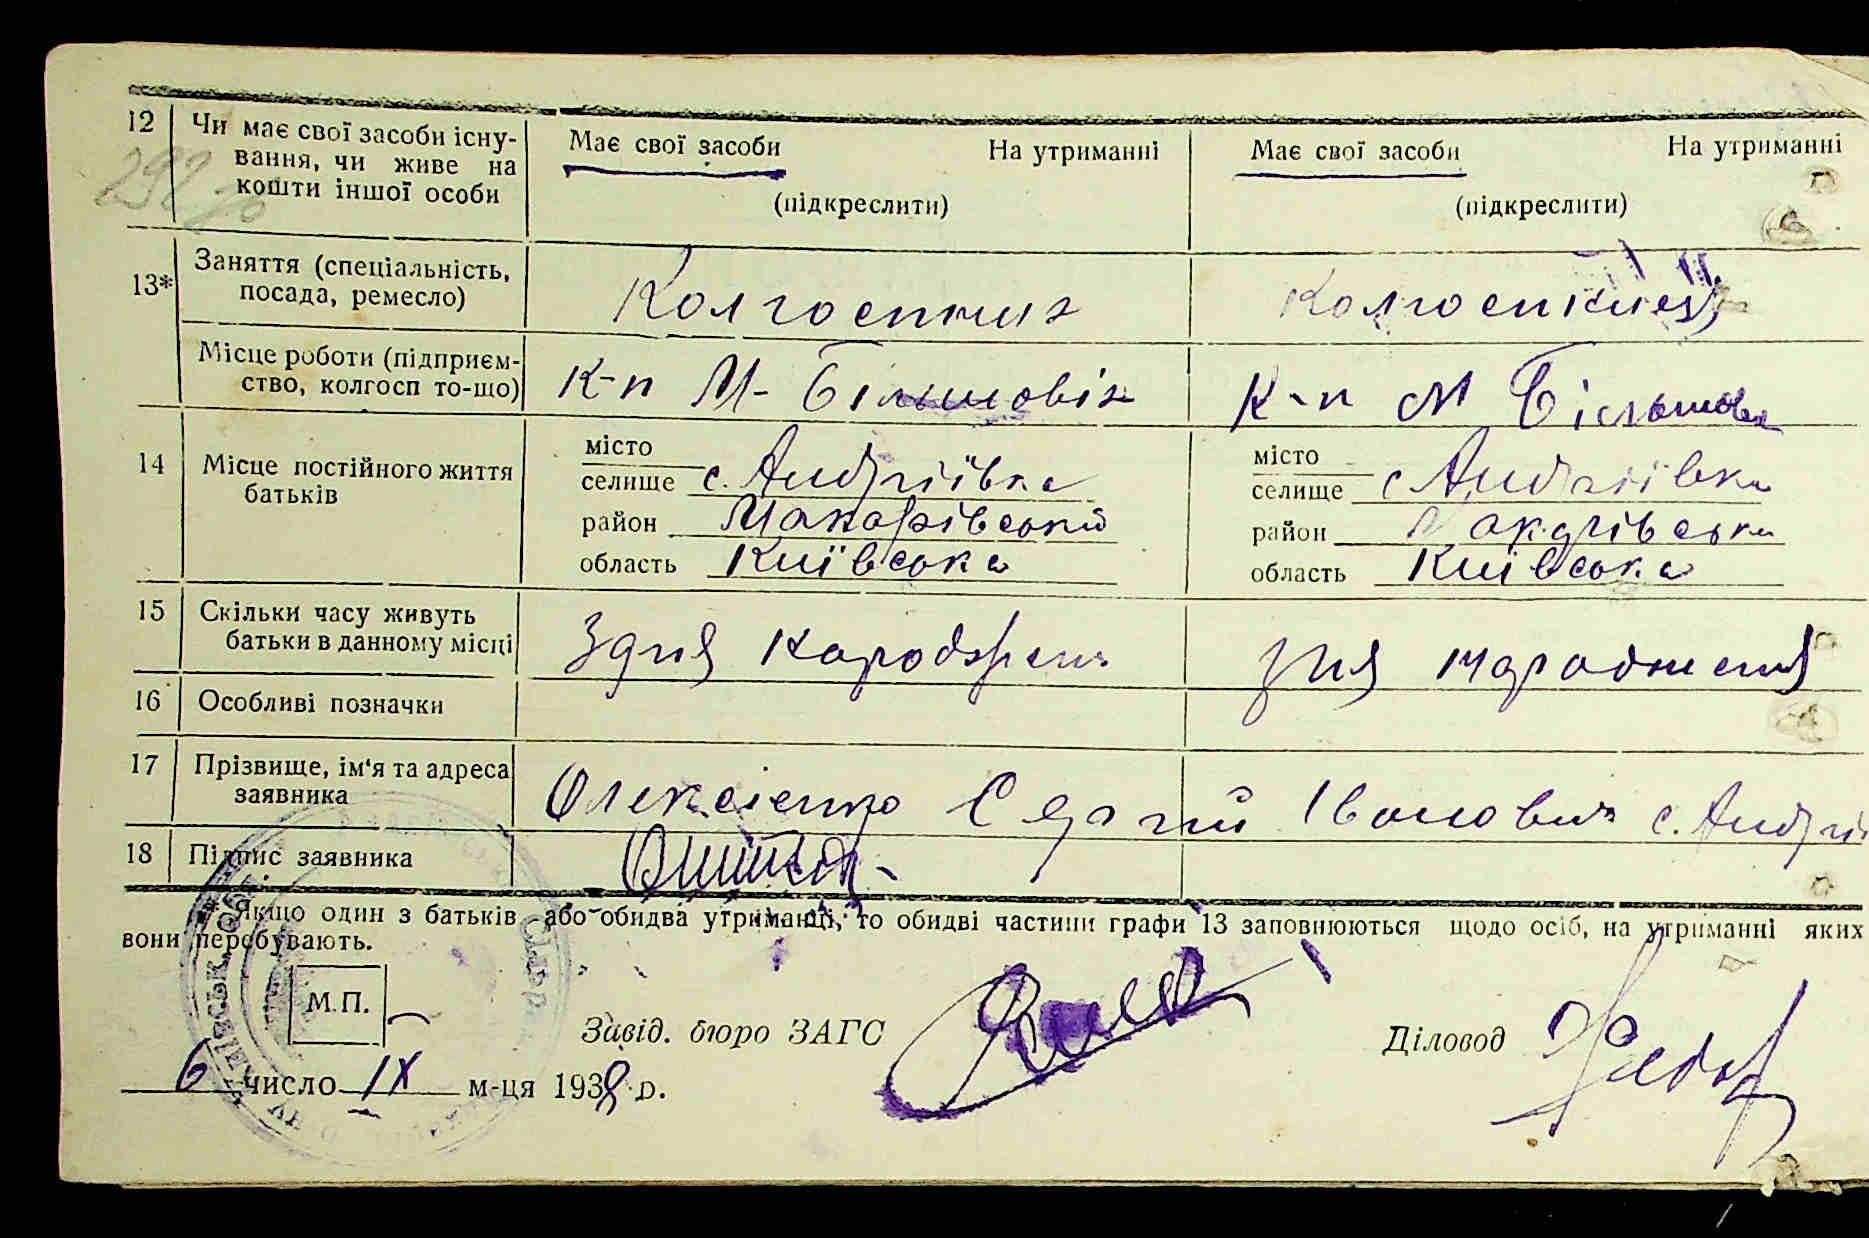 12 Чи має свої засоби існу- Має свої засоби На утриманні Має свої засоби На утриманні
вання, чи живе на
кошти іншої особи (підкреслити) (підкреслити)
13* Заняття (спеціальність, Колгоспник Колгоспниця
посада, ремесло)
Місце роботи (підприєм- К-п М- Більшовік К-п М
ство, колгосп то-що)
14 Місце постійного життя місто місто
батьків селище с. Андріївка селище с Андріївка
район Макарівський район
область Київська область Київська
15 Скільки часу живуть Здня народження зня народження
батьки в данному місці
16 Особливі позначки
17 Прізвище, ім'я та адреса Олексієнко Сергій Іванович с. Андрії
заявника
18 Підпис заявника
* Якщо один з батьків або обидва утриманці, то обидві частини графи 13 заповнюються щодо осіб, на утриманні яких
вони перебувають.
М.П.
Завід. бюро ЗАГС Діловод
6 число IX м-ця 1938 р.